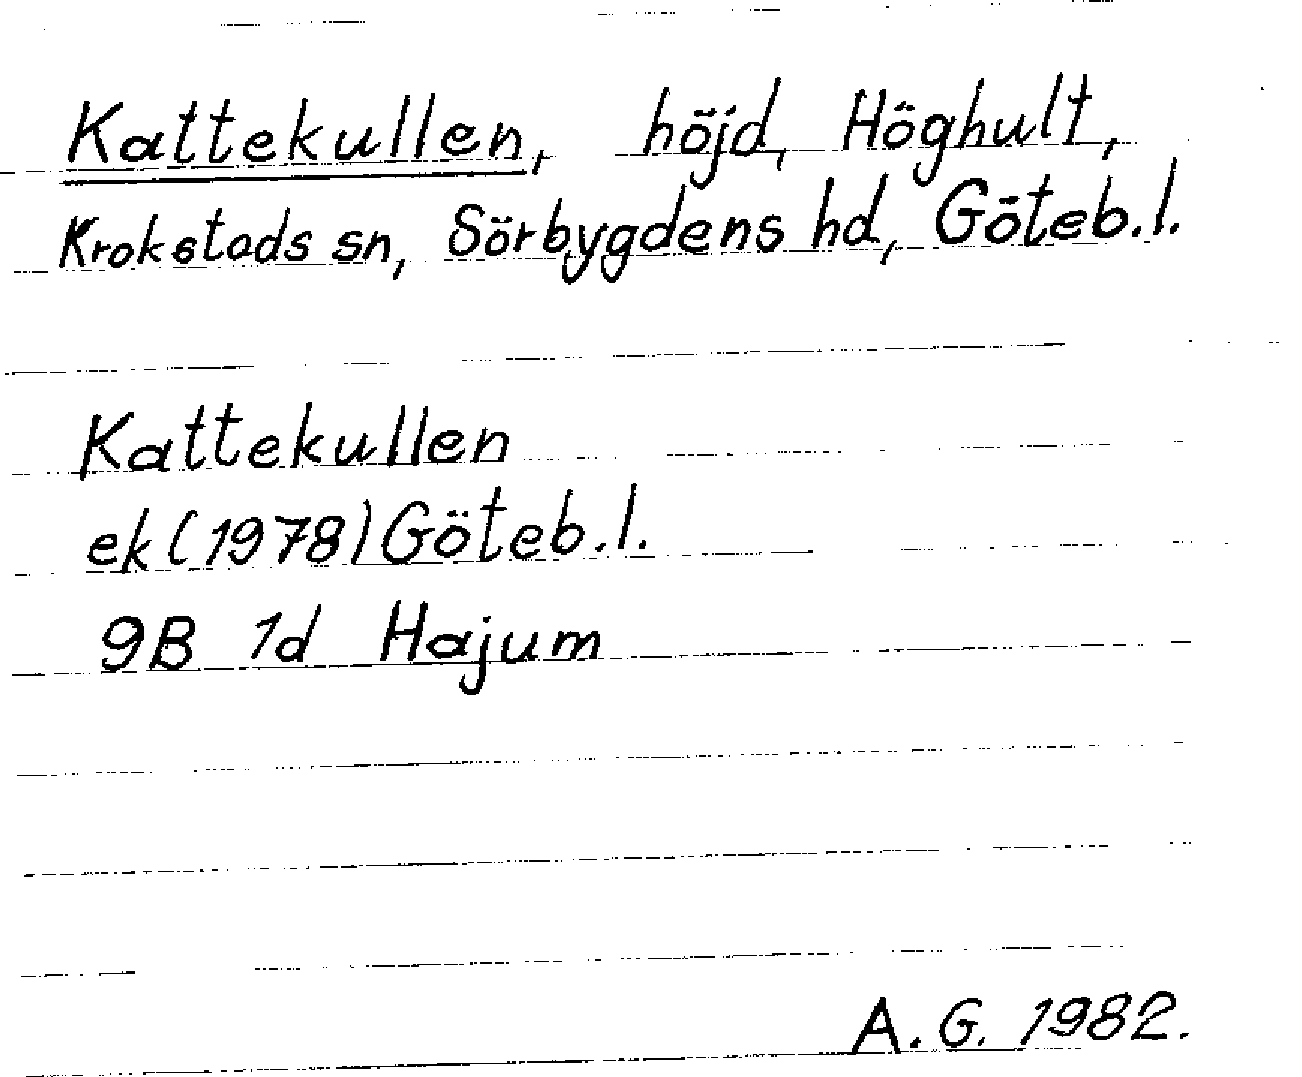 Kattekullen, höjd, Höghult,
Krokstads sn, Sörbygdens hd, Göteb.l.
Kattekullen
ek (1978) Göteb.l.
9B 1d Hajum
A.G. 1982.